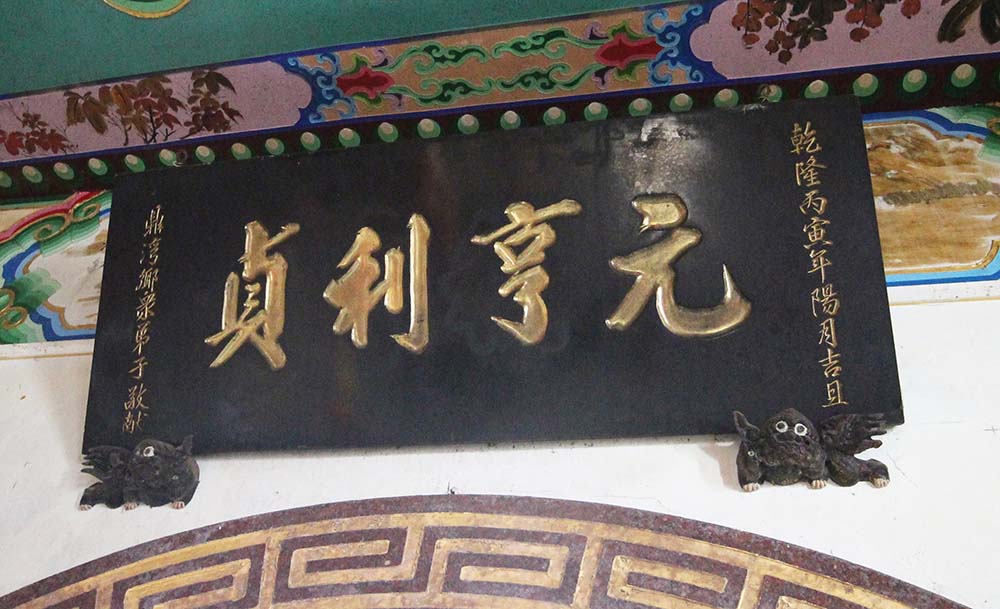 乾隆丙寅年陽月吉旦
元亨利貞
鼎湾鄉眾弟子敬献